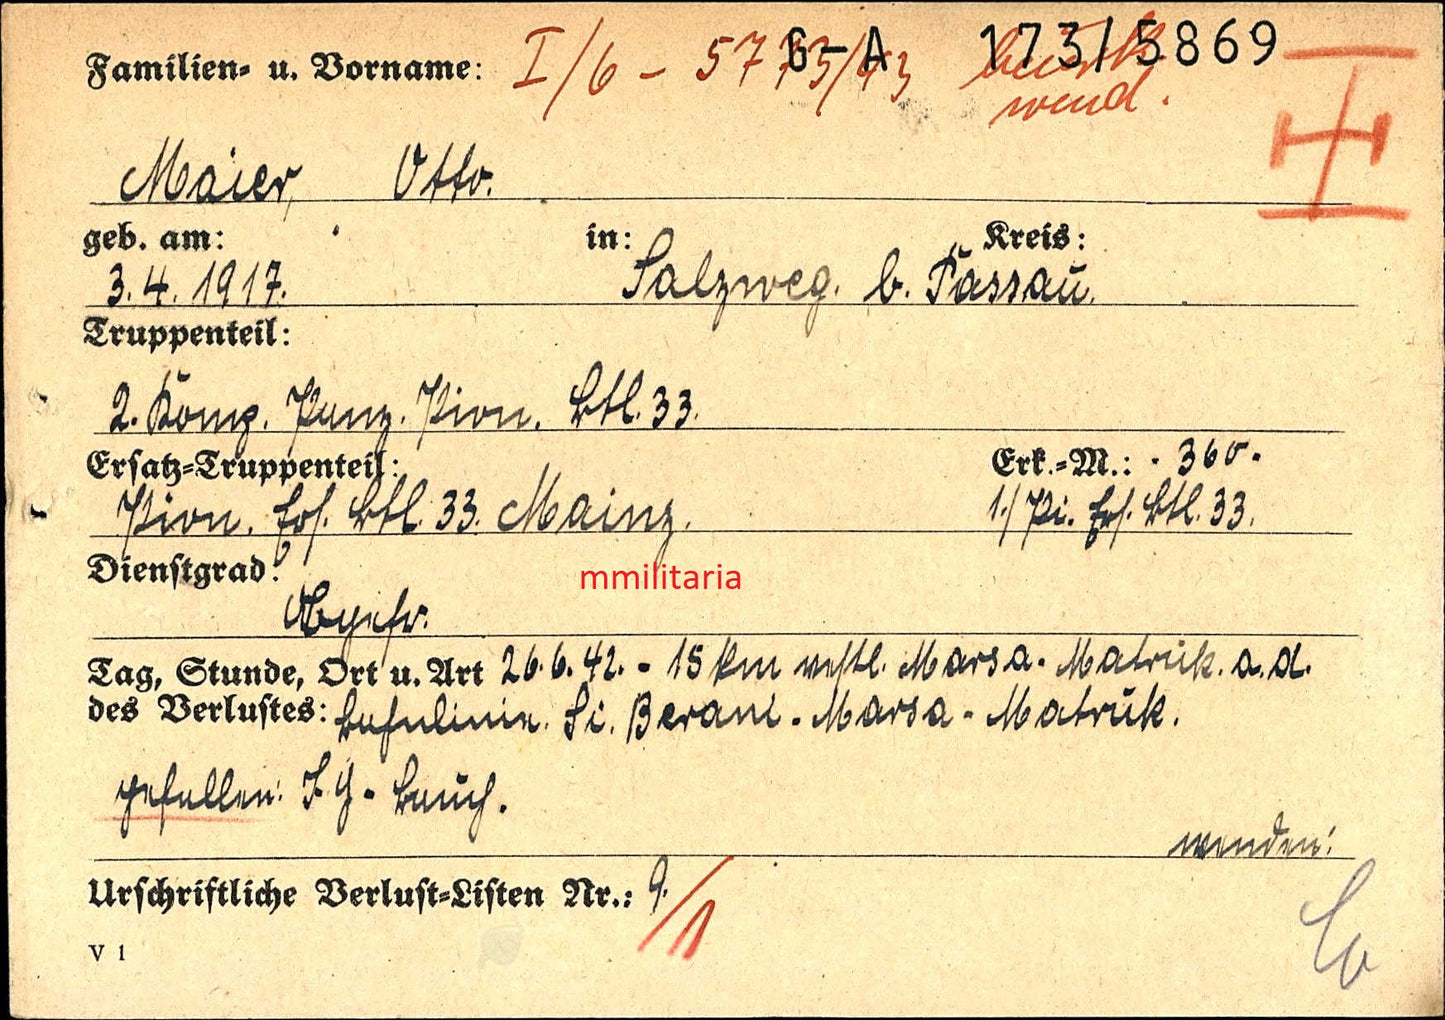 Familien- u. Vorname: I/6 - 5773/43 G-A 173/5869
wend.
Maier, Otto.
geb. am: in: Kreis:
3.4.1917. Salzweg. b. Passau.
Truppenteil:
2. Komp. Panz. Pion. Btl. 33.
Ersatz-Truppenteil: Erk.-M.: - 360 -
Pion. Ers. Btl. 33. Mainz. 1./Pi. Ers. Btl. 33.
Dienstgrad:
Obgefr.
mmilitaria
Tag, Stunde, Ort u. Art 26.6.42. - 15 km westl. Marsa - Matruk. a. d.
des Verlustes: Bahnlinie. Si. Berani - Marsa - Matruk.
gefallen: I.G. - Bauch.
wenden!
Urschriftliche Verlust-Listen Nr.: 9./1
V 1